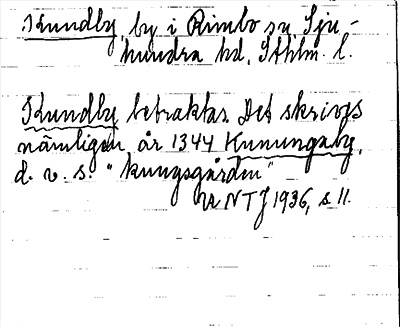 Kundby, by i Rimbo sn, Sju-
hundra hd, Sthlm. l.
Kundby betraktas. Det skrives
nämligen år 1344 Kunungaby,
d. v. s. "kungsgården"
Ur NTJ 1936, s 11.